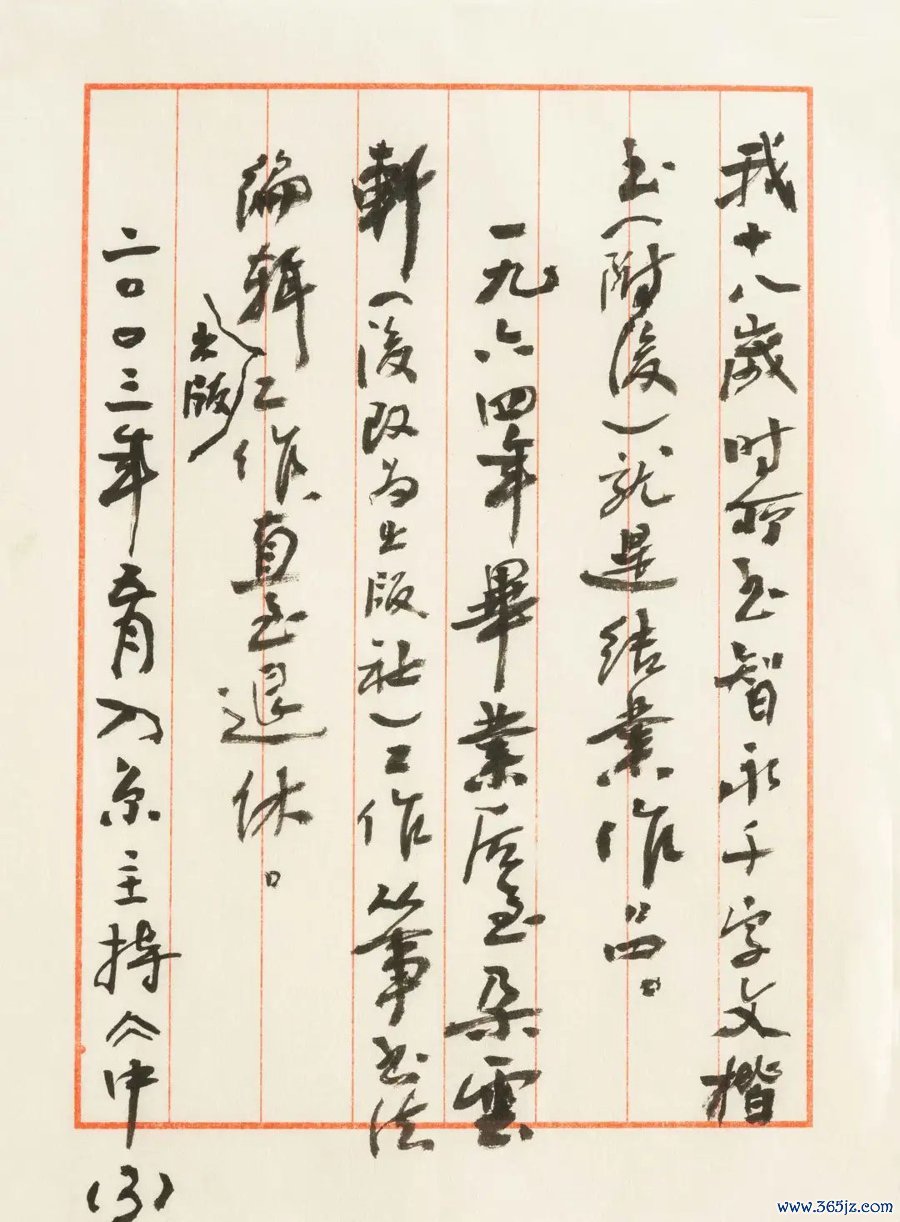 我十八歲时所书智永千字文楷
书（附後）就是结業作品。
一九六四年畢業后至朵雲
軒（後改为出版社）工作从事书法
编辑出版工作直至退休。
二〇〇三年五月入京主持《中
(3)
www.365jz.com